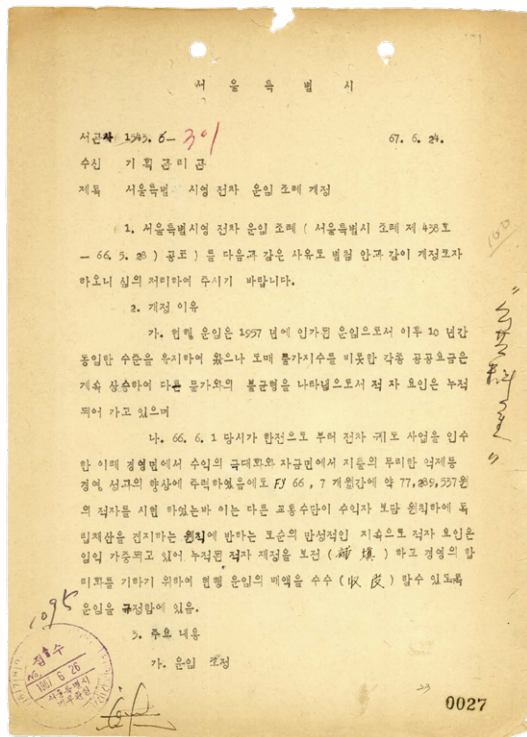 서 울 특 별 시
서관차 1543. 6- 301 67. 6. 24.
수신 기획관리관
제목 서울특별 시영 전차 운임 조례 개정
1. 서울특별시영 전차 운임 조례 ( 서울특별시 조례 제 438호
- 66. 5. 28 ) 공포 ) 를 다음과 같은 사유로 별첨 안과 같이 개정코자
하오니 심의 처리하여 주시기 바랍니다.
2. 개정 이유
가. 현행 운임은 1957 년에 인가된 운임으로서 이후 10 년간
동일한 수준을 유지하여 왔으나 도매 물가지수를 비롯한 각종 공공요금은
계속 상승하여 다른 물가와의 불균형을 나타냄으로서 적 자 요인은 누적
되어 가고 있으며
나. 66. 6. 1 당시가 한전으로 부터 전차 궤도 사업을 인수
한 이래 경영면에서 수익의 극대화와 자금면에서 지출의 무리한 억제등
경영 성과의 향상에 주력하였음에도 FY 66, 7 개월간에 약 77,289,557원
의 적자를 시현 하였는바 이는 다른 교통수단이 수익자 부담 원칙하에 독
립채산을 견지하는 원칙에 반하는 모순의 만성적인 지속으로 적자 요인은
일익 가중되고 있어 누적된 적자 재정을 보전 (補塡) 하고 경영의 합
리화를 기하기 위하여 현행 운임의 배액을 수수 (收受) 할수 있도록
운임을 규정함에 있음.
3. 주요 내용
가. 운임 조정
1095
접수
No.
1967 6 26
서울특별시
23
0027